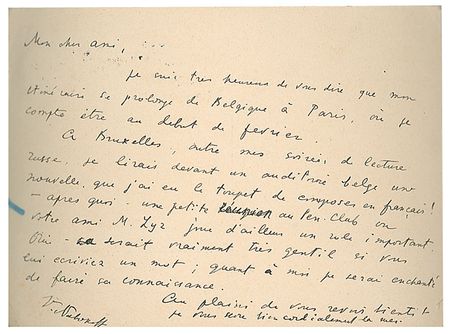 Mon cher ami,
je suis très heureux de vous dire que mon
itinéraire se prolonge de Belgique à Paris, où je
compte être au debut de fevrier.
A Bruxelles, outre mes soirées de lecture
russe, je lirais devant un auditoire belge une
nouvelle, que j'ai eu le toupet de composer en français!
- après quoi - une petite réunion au Pen-Club ou
votre ami M. Zyz joue d'ailleurs un role important
Oui - ça serait vraiment très gentil si vous
lui écriviez un mot; quant à moi je serai enchanté
de faire sa connaissance.
plaisir de vous revoir bientôt
je vous serre bien cordialement la main
V. Nabokoff